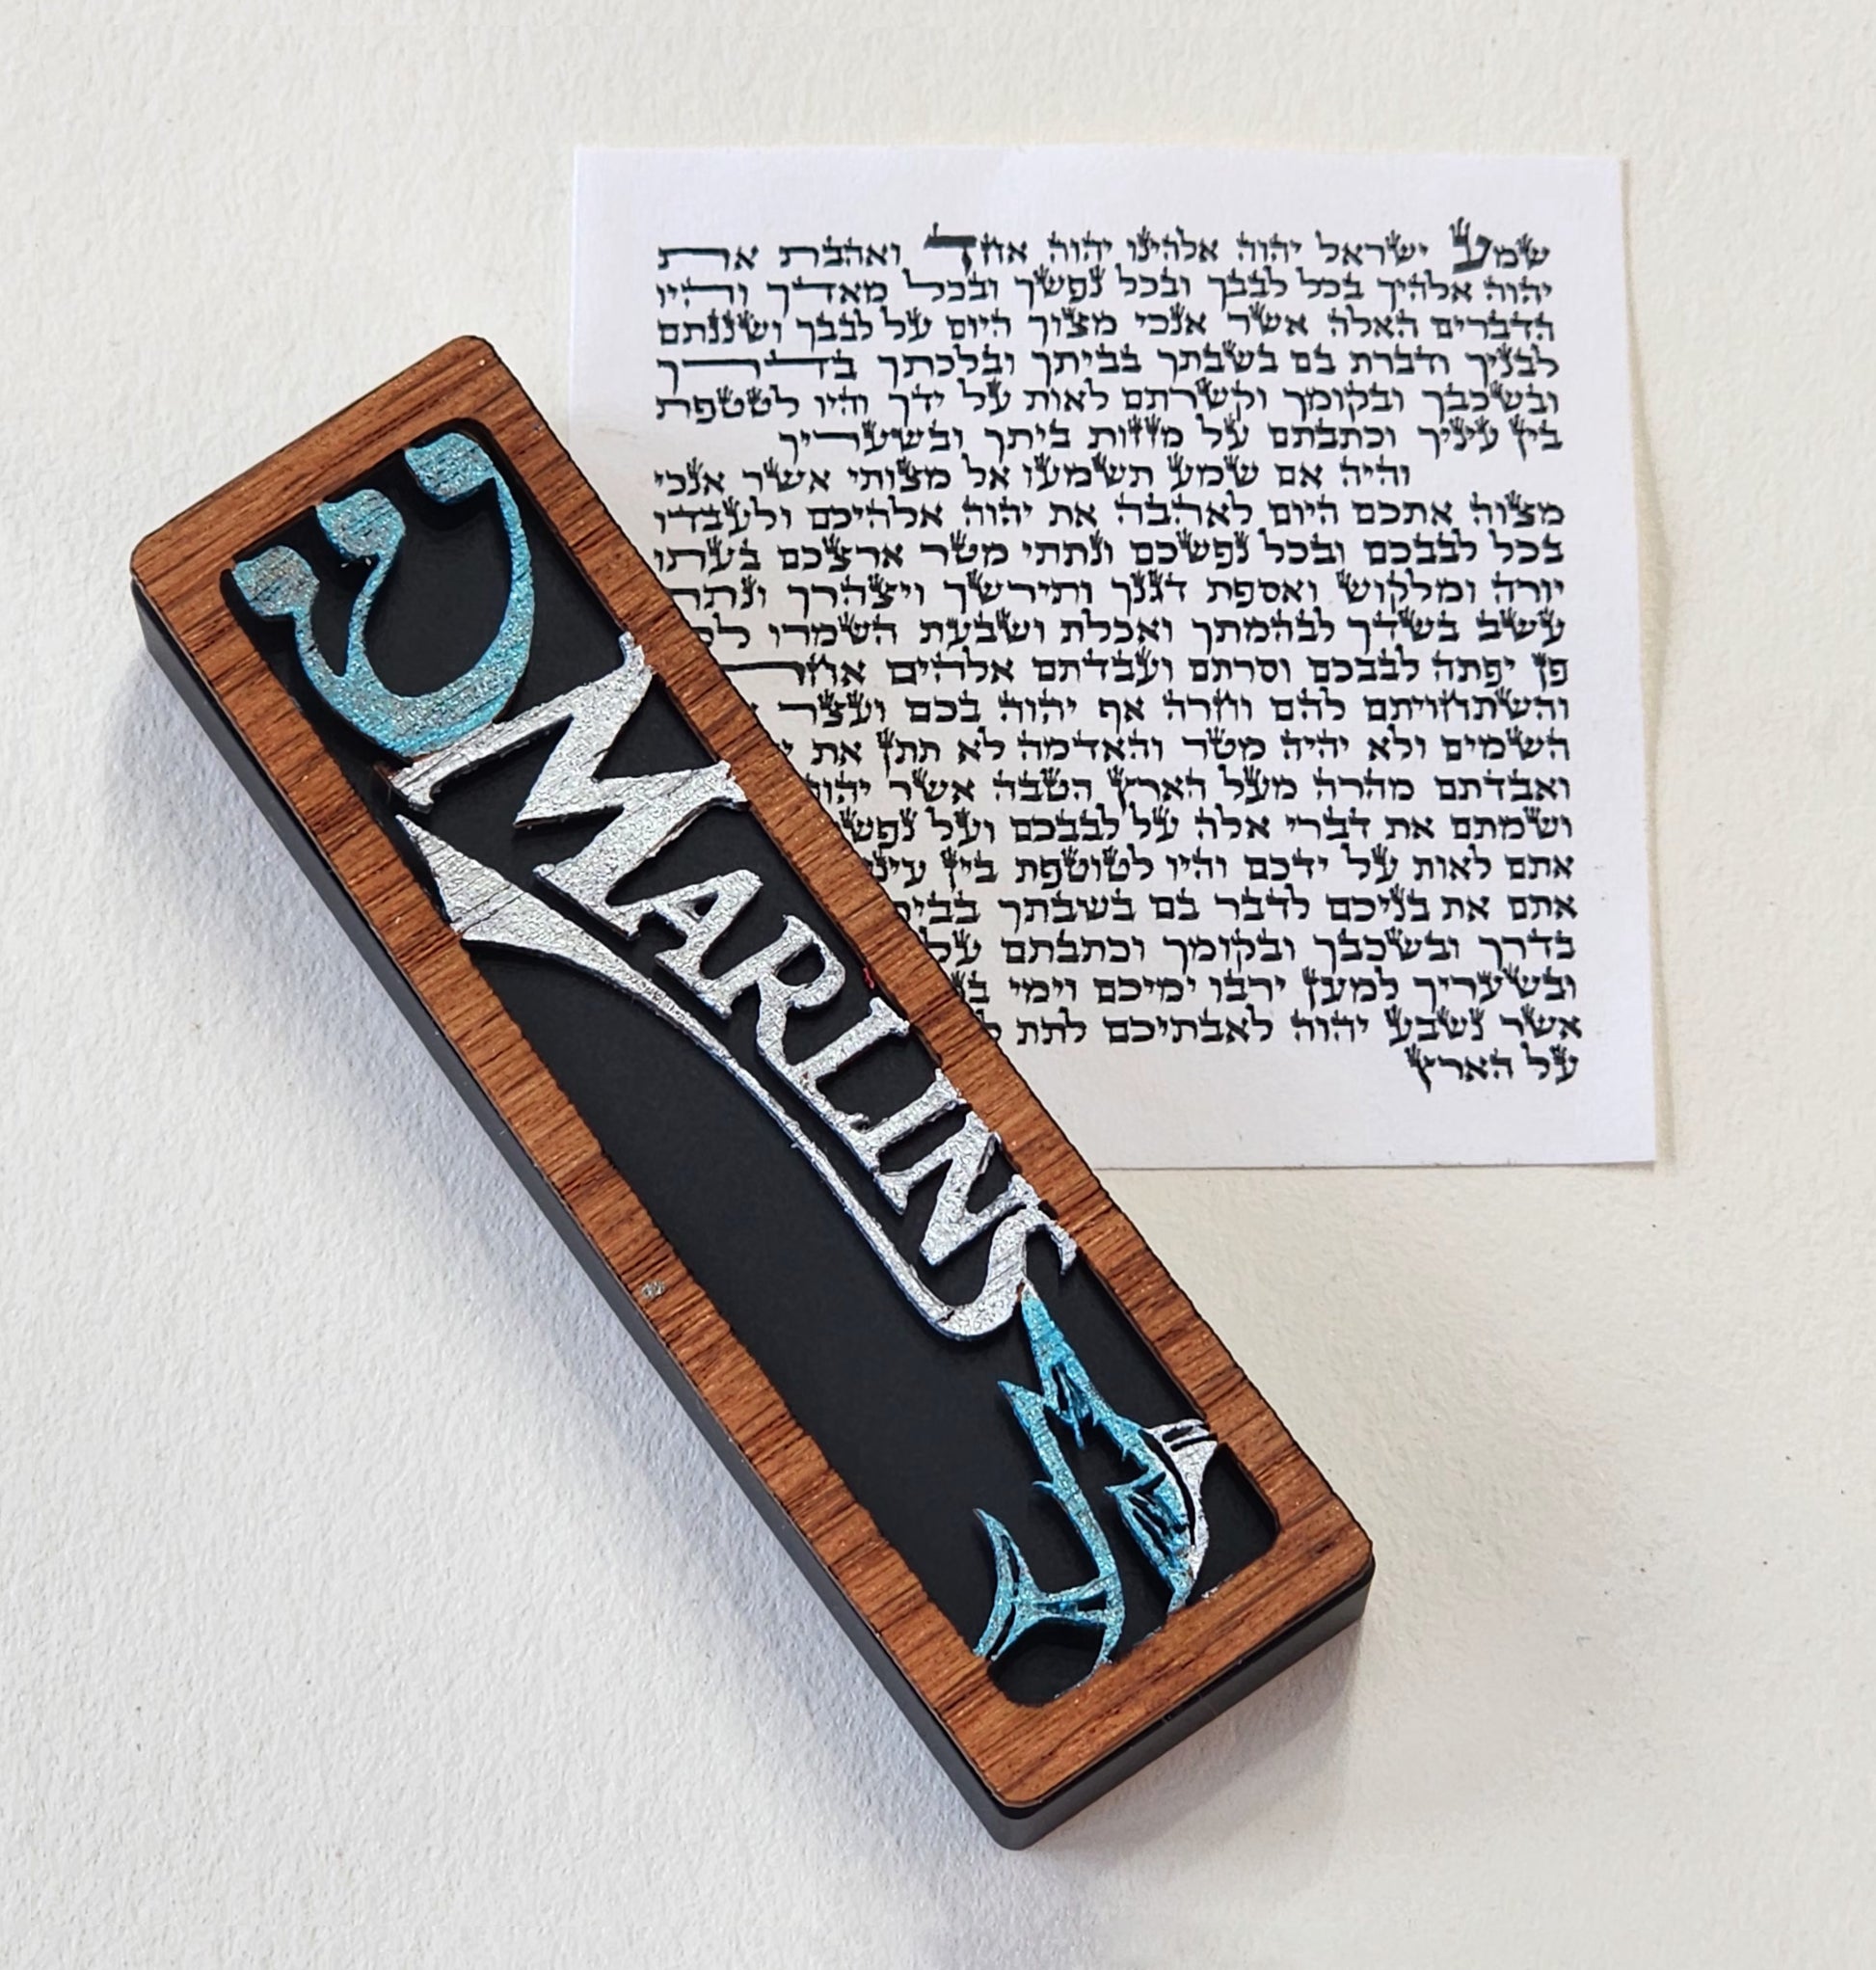 ש
MARLINS
שמע ישראל יהוה אלהינו יהוה אחד ואהבת את
יהוה אלהיך בכל לבבך ובכל נפשך ובכל מאדך והיו
הדברים האלה אשר אנכי מצוך היום על לבבך ושננתם
לבניך ודברת בם בשבתך בביתך ובלכתך בדרך
ובשכבך ובקומך וקשרתם לאות על ידך והיו לטטפת
בין עיניך וכתבתם על מזזות ביתך ובשעריך
והיה אם שמע תשמעו אל מצותי אשר אנכי
מצוה אתכם היום לאהבה את יהוה אלהיכם ולעבדו
בכל לבבכם ובכל נפשכם ונתתי מטר ארצכם בעתו
יורה ומלקוש ואספת דגנך ותירשך ויצהרך ונתתי
עשב בשדך לבהמתך ואכלת ושבעת השמרו
פן יפתה לבבכם וסרתם ועבדתם אלהים
והשתחויתם להם וחרה אף יהוה בכם ועצר
השמים ולא יהיה מטר והאדמה לא תתן את
ואבדתם מהרה מעל הארץ הטבה אשר יהוה
ושמתם את דברי אלה על לבבכם ועל
אתם לאות על ידכם והיו לטוטפת בין
אתם את בניכם לדבר בם בשבתך
בדרך ובשכבך ובקומך וכתבתם על
ובשעריך למען ירבו ימיכם וימי
אשר נשבע יהוה לאבתיכם לתת
על הארץ